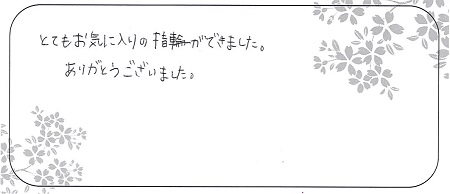 とてもお気に入りの指輪ができました。
ありがとうございました。